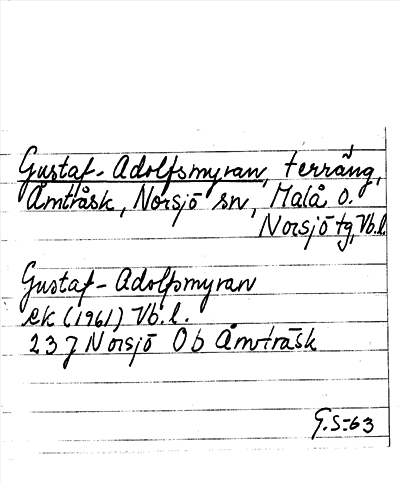 Gustaf-Adolfsmyran, terräng,
Åmträsk, Norsjö sn, Malå o.
Norsjö tg, Vb.l.
Gustaf-Adolfsmyran
ek (1961) Vb.l.
23J Norsjö Ob Åmträsk
G.S-63